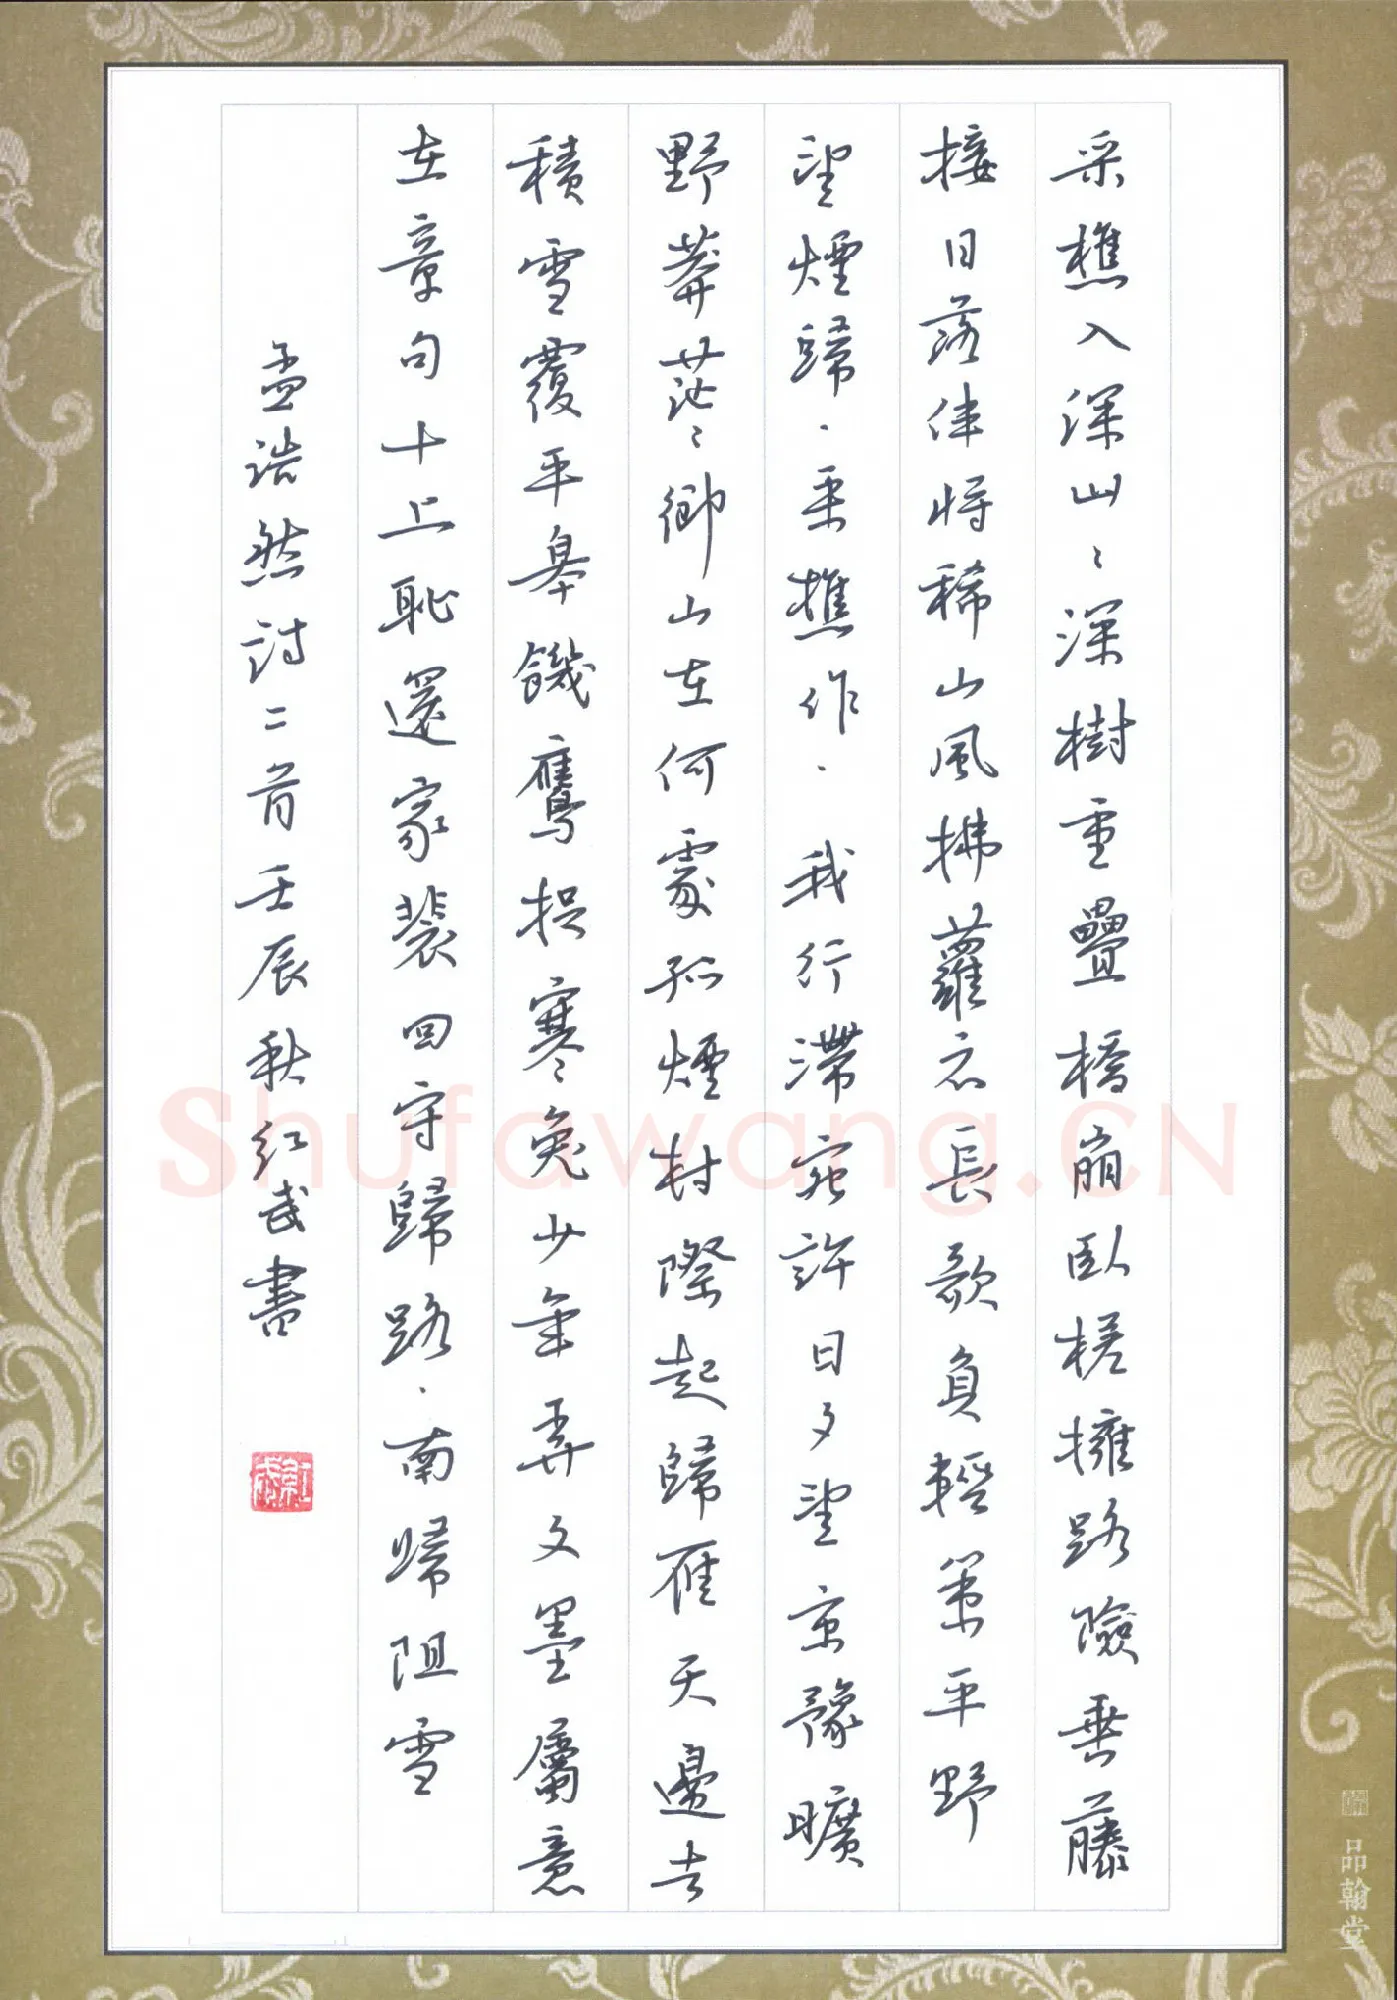 采樵入深山〻深樹重疊橋崩臥槎擁路險垂藤
接日落伴將稀山風拂蘿衣長歌負輕策平野
望煙歸·采樵作·我行滯宛許日夕望京豫曠
野莽茫〻鄉山在何處孤煙村際起歸雁天邊去
積雪覆平皋饑鷹捉寒兔少年弄文墨屬意
在章句十上恥還家裴回守歸路·南歸阻雪
孟浩然詩二首壬辰秋紅武書
品翰堂
Shufawang.CN